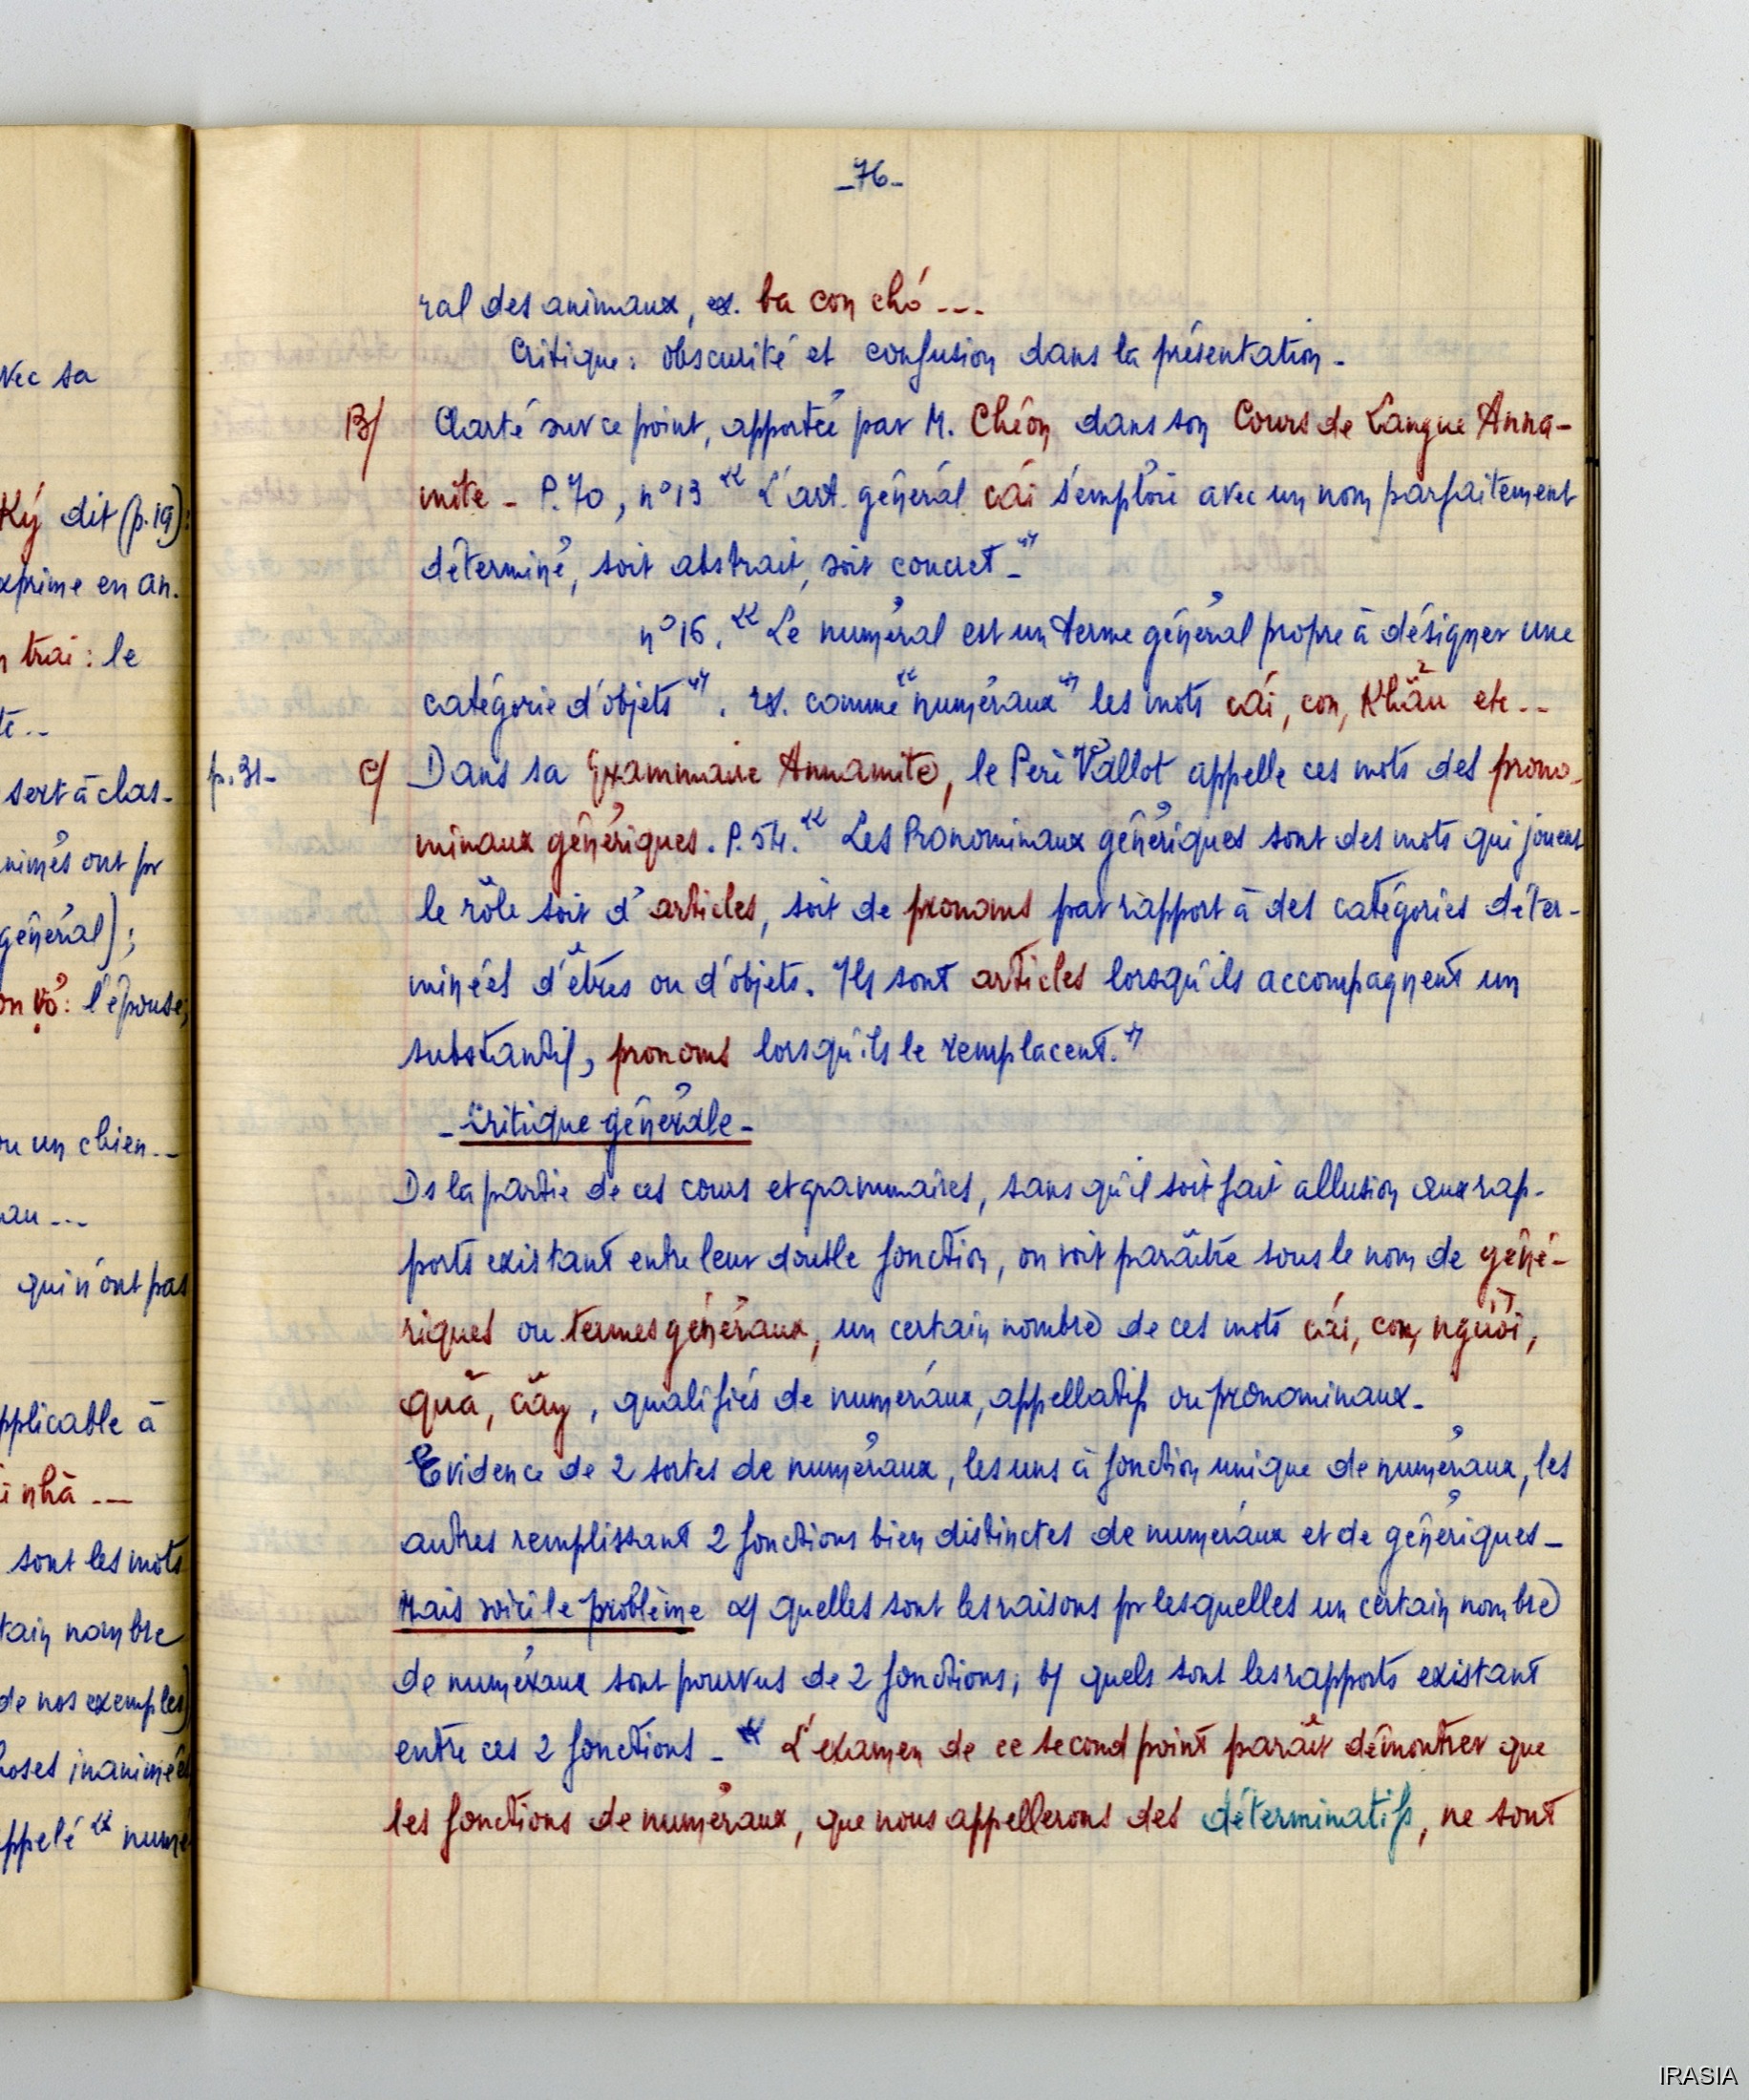 vec sa
Ký dit (p.19):
xprime en an.
n trai : le
sert à clas-
nimés ont pr
général) ;
on vợ : l'épouse ;
ou un chien --
au ---
qui n'ont pas
pplicable à
i nhà ---
sont les mots
tain nombre
de nos exemples)
hoses inanimées
ppelé “ numé
-76-
ral des animaux, ex. ba con chó ---
Critique : obscurité et confusion dans la présentation -
B/ Clarté sur ce point, apportée par M. Chéon dans son Cours de Langue Anna-
mite - P.70, n°13 “ L'art. général cái s'emploie avec un nom parfaitement
déterminé, soit abstrait, soit concret ” -
n°16. “ Le numéral est un terme général propre à désigner une
catégorie d'objets ”. ex. comme “ numéraux ” les mots cái, con, Khẩu etc --
p.31- C/ Dans sa Grammaire Annamite, le Père Vallot appelle ces mots des prono-
minaux génériques. P.54. “ Les Pronominaux génériques sont des mots qui jouent
le rôle soit d'articles, soit de pronoms par rapport à des catégories déter-
minées d'êtres ou d'objets. Ils sont articles lorsqu'ils accompagnent un
substantif, pronoms lorsqu'ils le remplacent. ”
- Critique générale -
Ds la partie de ces cours et grammaires, sans qu'il soit fait allusion aux rap-
ports existant entre leur double fonction, on voit paraître sous le nom de géné-
riques ou termes généraux, un certain nombre de ces mots cái, con, người,
quả, cây, qualifiés de numéraux, appellatifs ou pronominaux -
Evidence de 2 sortes de numéraux, les uns à fonction unique de numéraux, les
autres remplissant 2 fonctions bien distinctes de numéraux et de génériques -
Mais voici le problème a/ quelles sont les raisons pr lesquelles un certain nombre
de numéraux sont pourvus de 2 fonctions ; b/ quels sont les rapports existant
entre ces 2 fonctions - “ L'examen de ce second point paraît démontrer que
les fonctions de numéraux, que nous appellerons des déterminatifs, ne sont
IRASIA